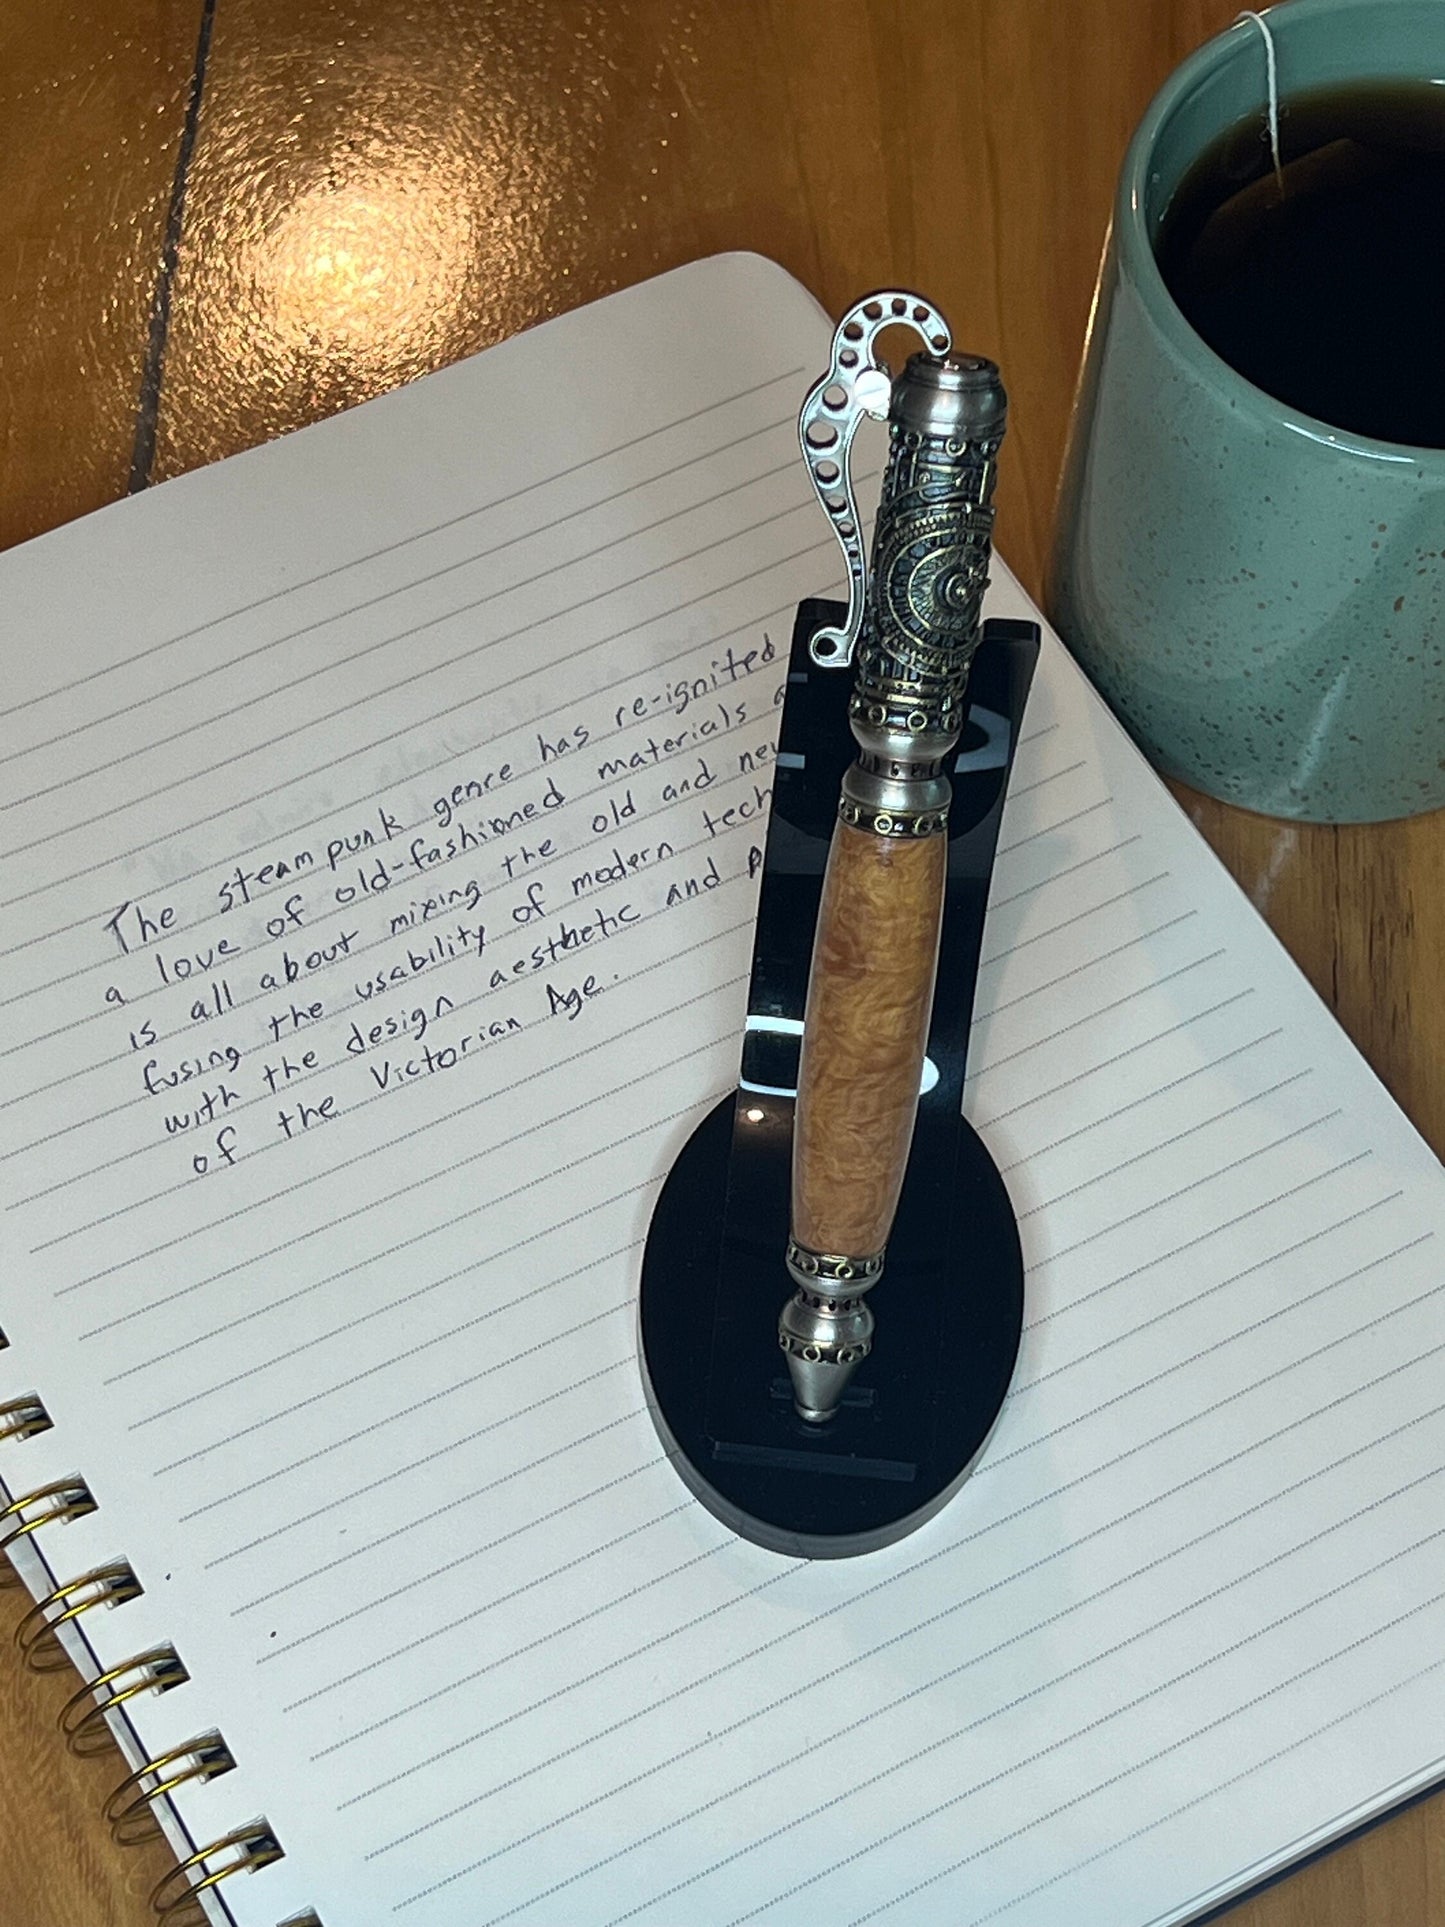 The steampunk genre has re-ignited
a love of old-fashioned materials
is all about mixing the old and
fusing the usability of modern
with the design aesthetic and
of the Victorian Age.